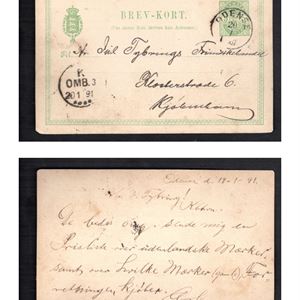 BREV-KORT.
(Paa denne Side skrives kun Adressen.)
ODENSE
Hr. Jul. Tybrings Frimærkehandel
Klosterstræde 6.
Kjøbenhavn
K.
OMB.3
20 1 91
Odense d. 19-1-91.
Hr. J. Tybring!
Kbhvn.
De bedes sende mig en
Prisliste over udenlandske Mærker,
samt over hvilke Mærker
Kjøber.